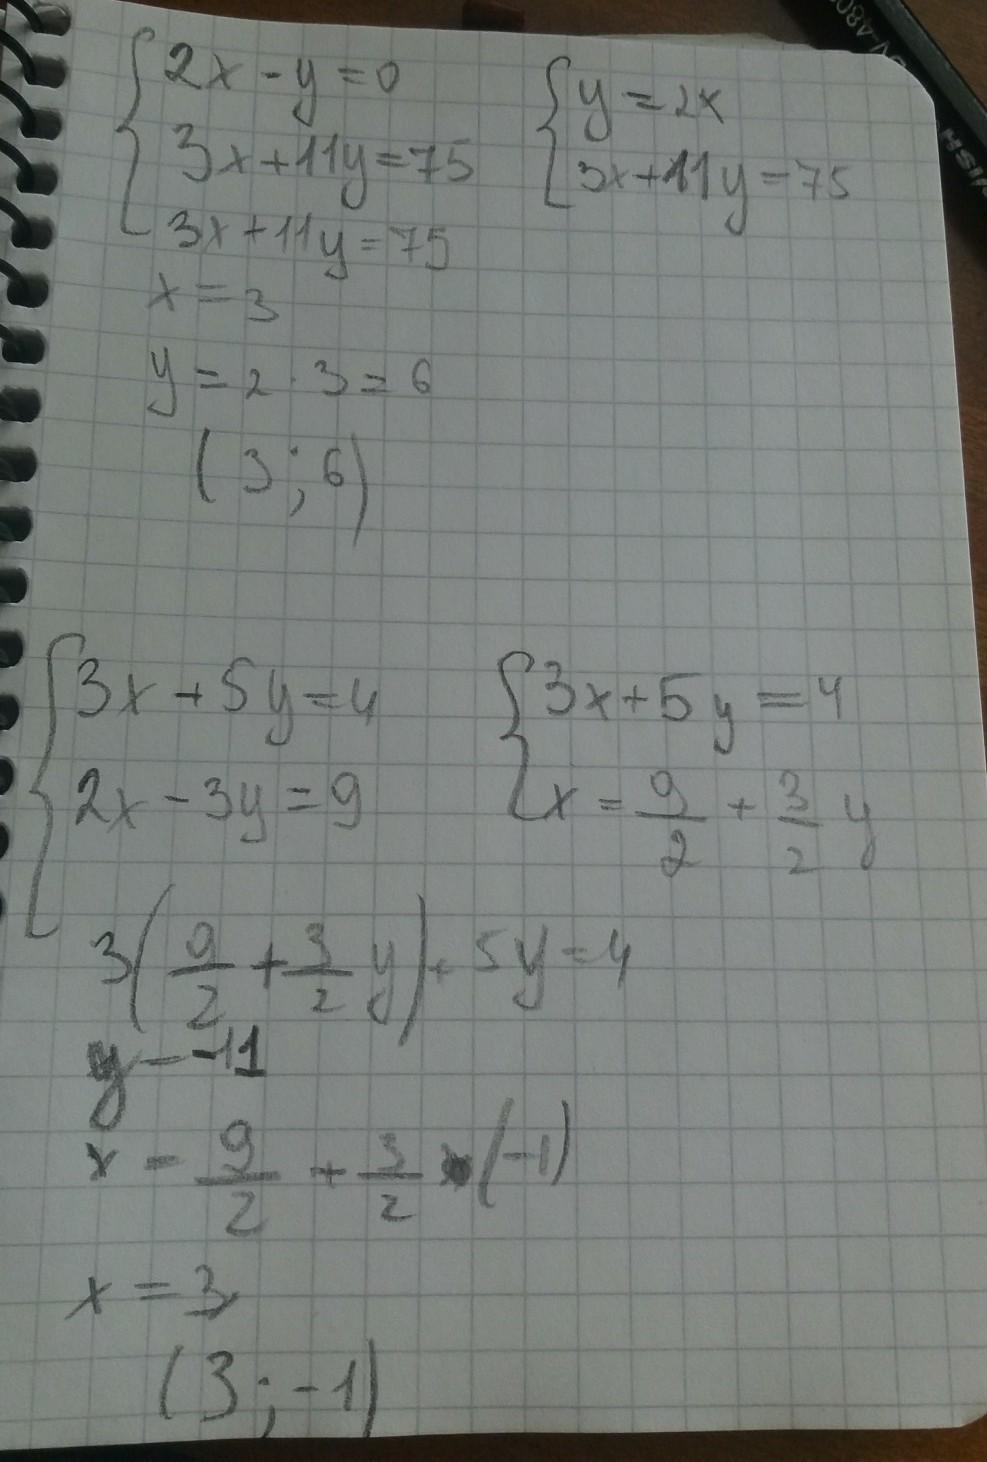 2x - y = 0
3x + 11y = 75
y = 2x
3x + 11y = 75
3x + 11y = 75
x = 3
y = 2 · 3 = 6
(3; 6)
3x + 5y = 4
2x - 3y = 9
3x + 5y = 4
x = 9/2 + 3/2 y
3(9/2 + 3/2 y) + 5y = 4
y = -11
x = 9/2 + 3/2 · (-1)
x = 3
(3; -1)